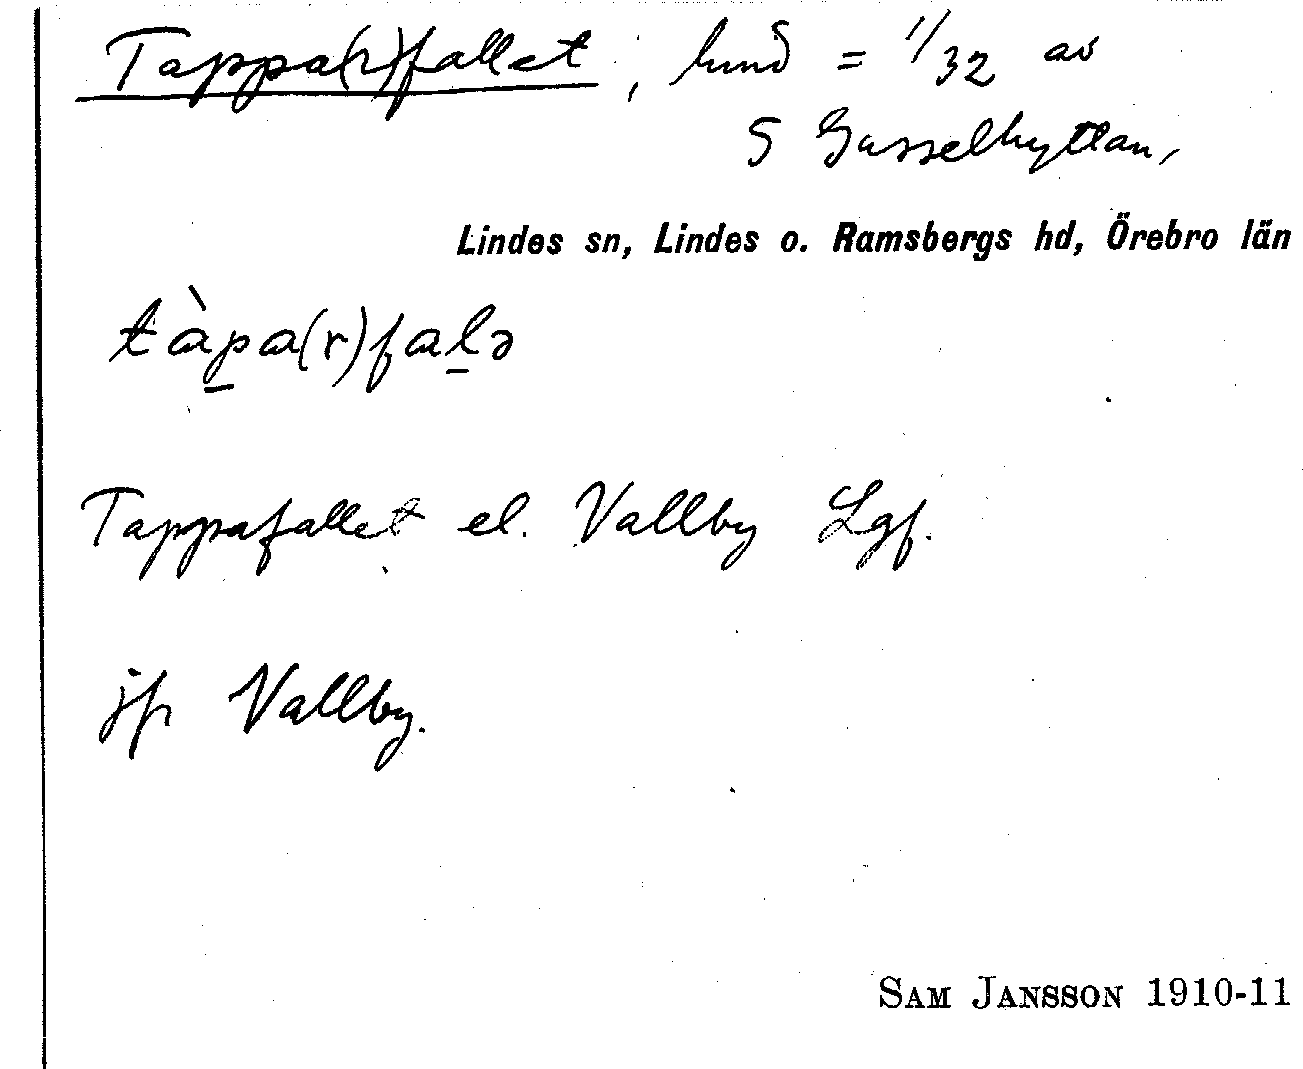 Tappa(r)fallet, hmd = 1/32 av
S Gusselhyttan,
Lindes sn, Lindes o. Ramsbergs hd, Örebro län
tàp̲a(r)fal̲ə
Tappafallet el. Vallby Lgf.
jfr Vallby.
SAM JANSSON 1910-11